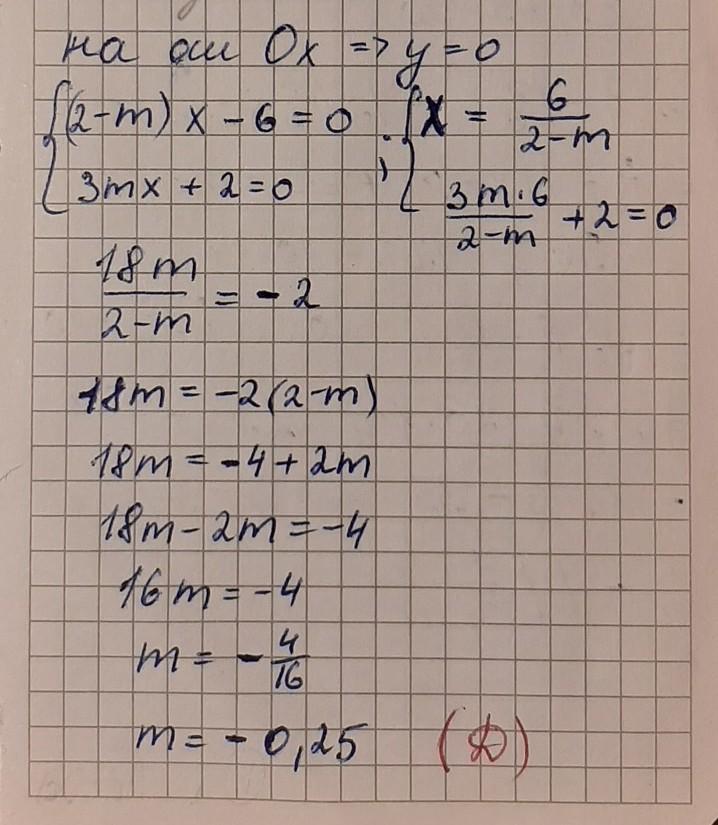 на оси Ox => y = 0
{(2-m) x - 6 = 0 ; {x = 6/(2-m)
3mx + 2 = 0      3m·6/(2-m) + 2 = 0
18m/(2-m) = -2
18m = -2(2-m)
18m = -4 + 2m
18m - 2m = -4
16m = -4
m = - 4/16
m = - 0,25 (Д)